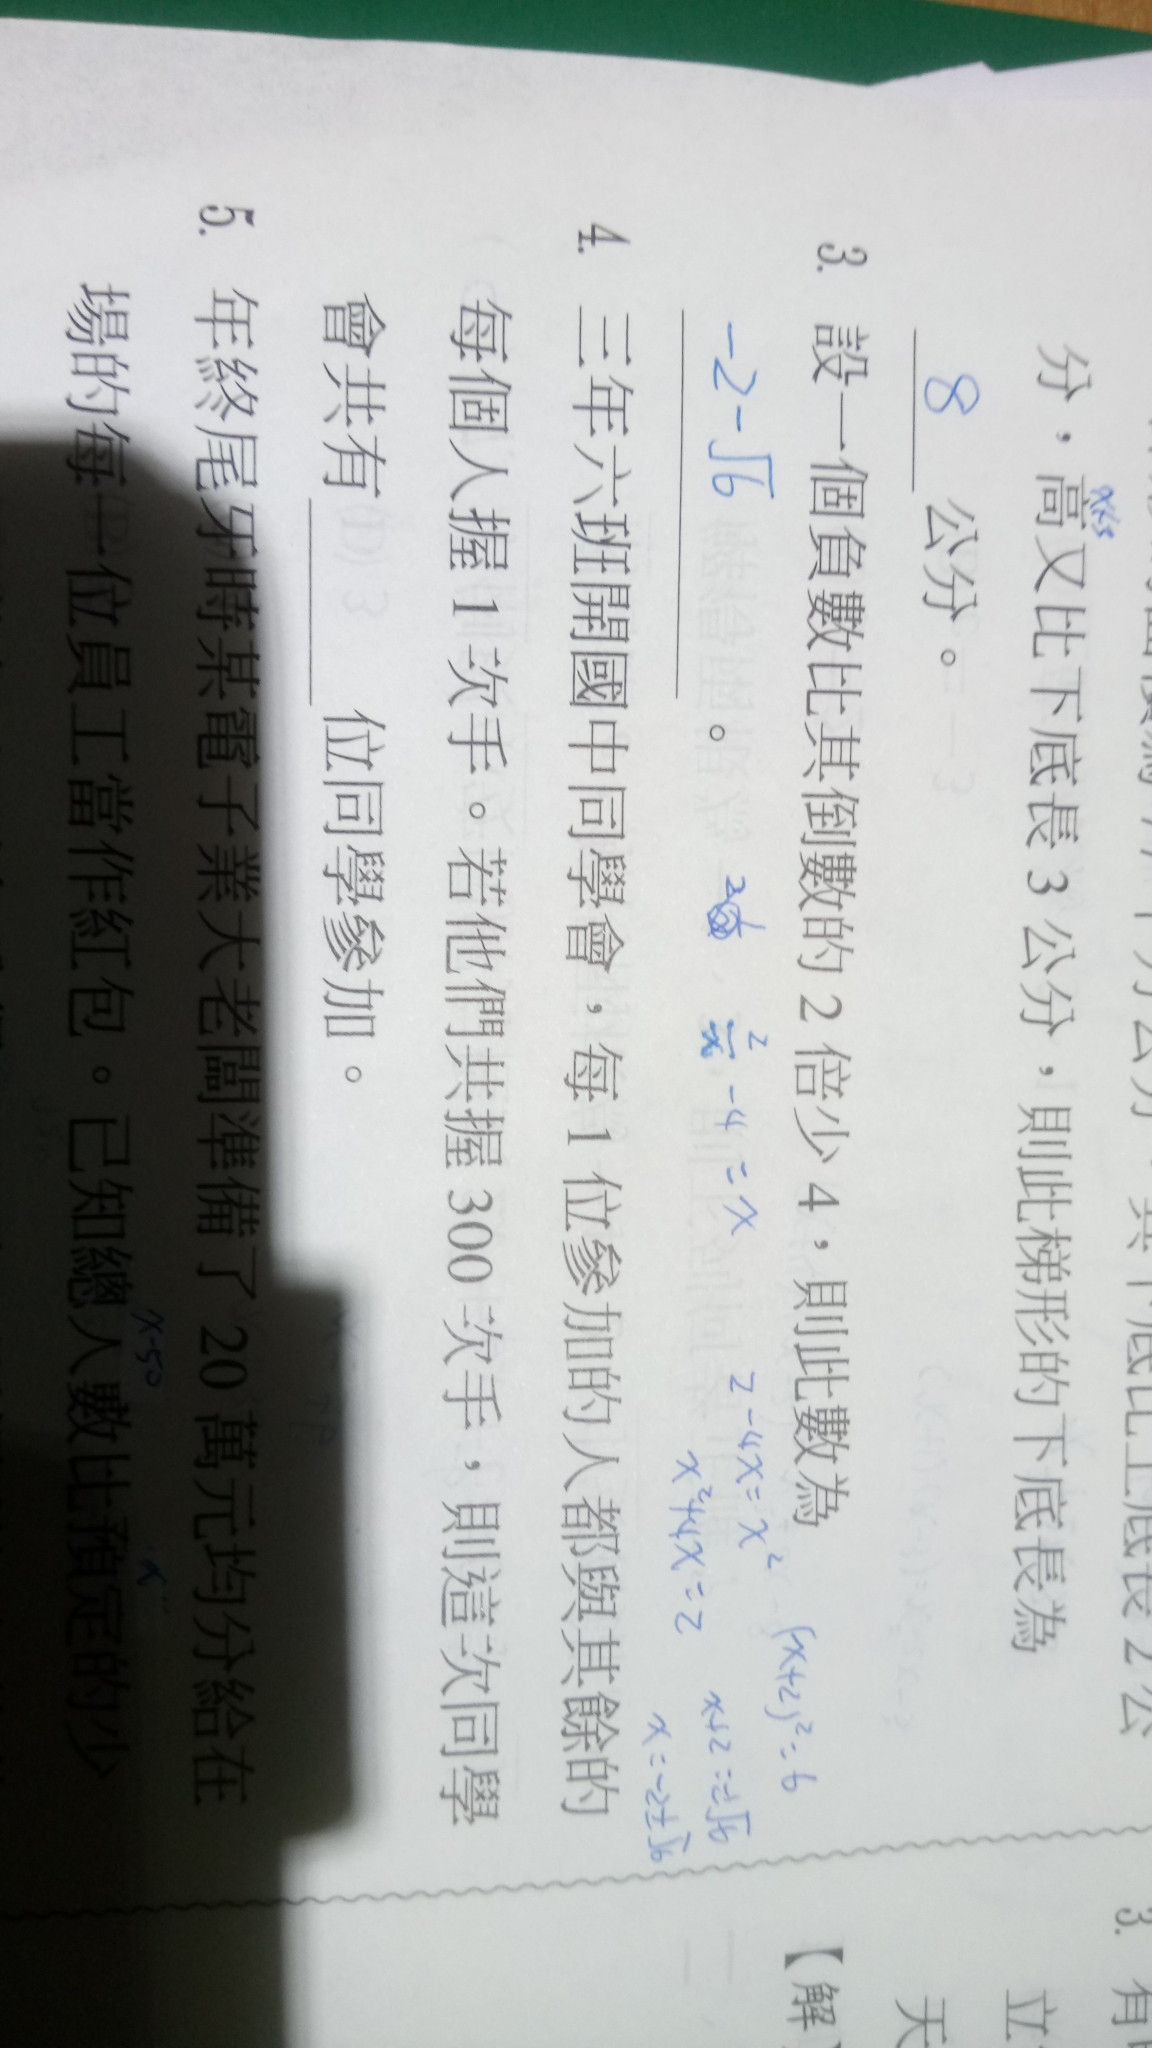 分，高又比下底長 3 公分，則此梯形的下底長為
x+3
8 公分。
3. 設一個負數比其倒數的 2 倍少 4，則此數為
-2-√6 。
2/x -4 = x
2-4x=x²
x²+4x=2
(x+2)²=6
x+2=±√6
x=-2±√6
4. 三年六班開國中同學會，每 1 位參加的人都與其餘的
每個人握 1 次手。若他們共握 300 次手，則這次同學
會共有 位同學參加。
5. 年終尾牙時某電子業大老闆準備了 20 萬元均分給在
場的每一位員工當作紅包。已知總人數比預定的少
x-50
x
3. 有
立
天
【解】